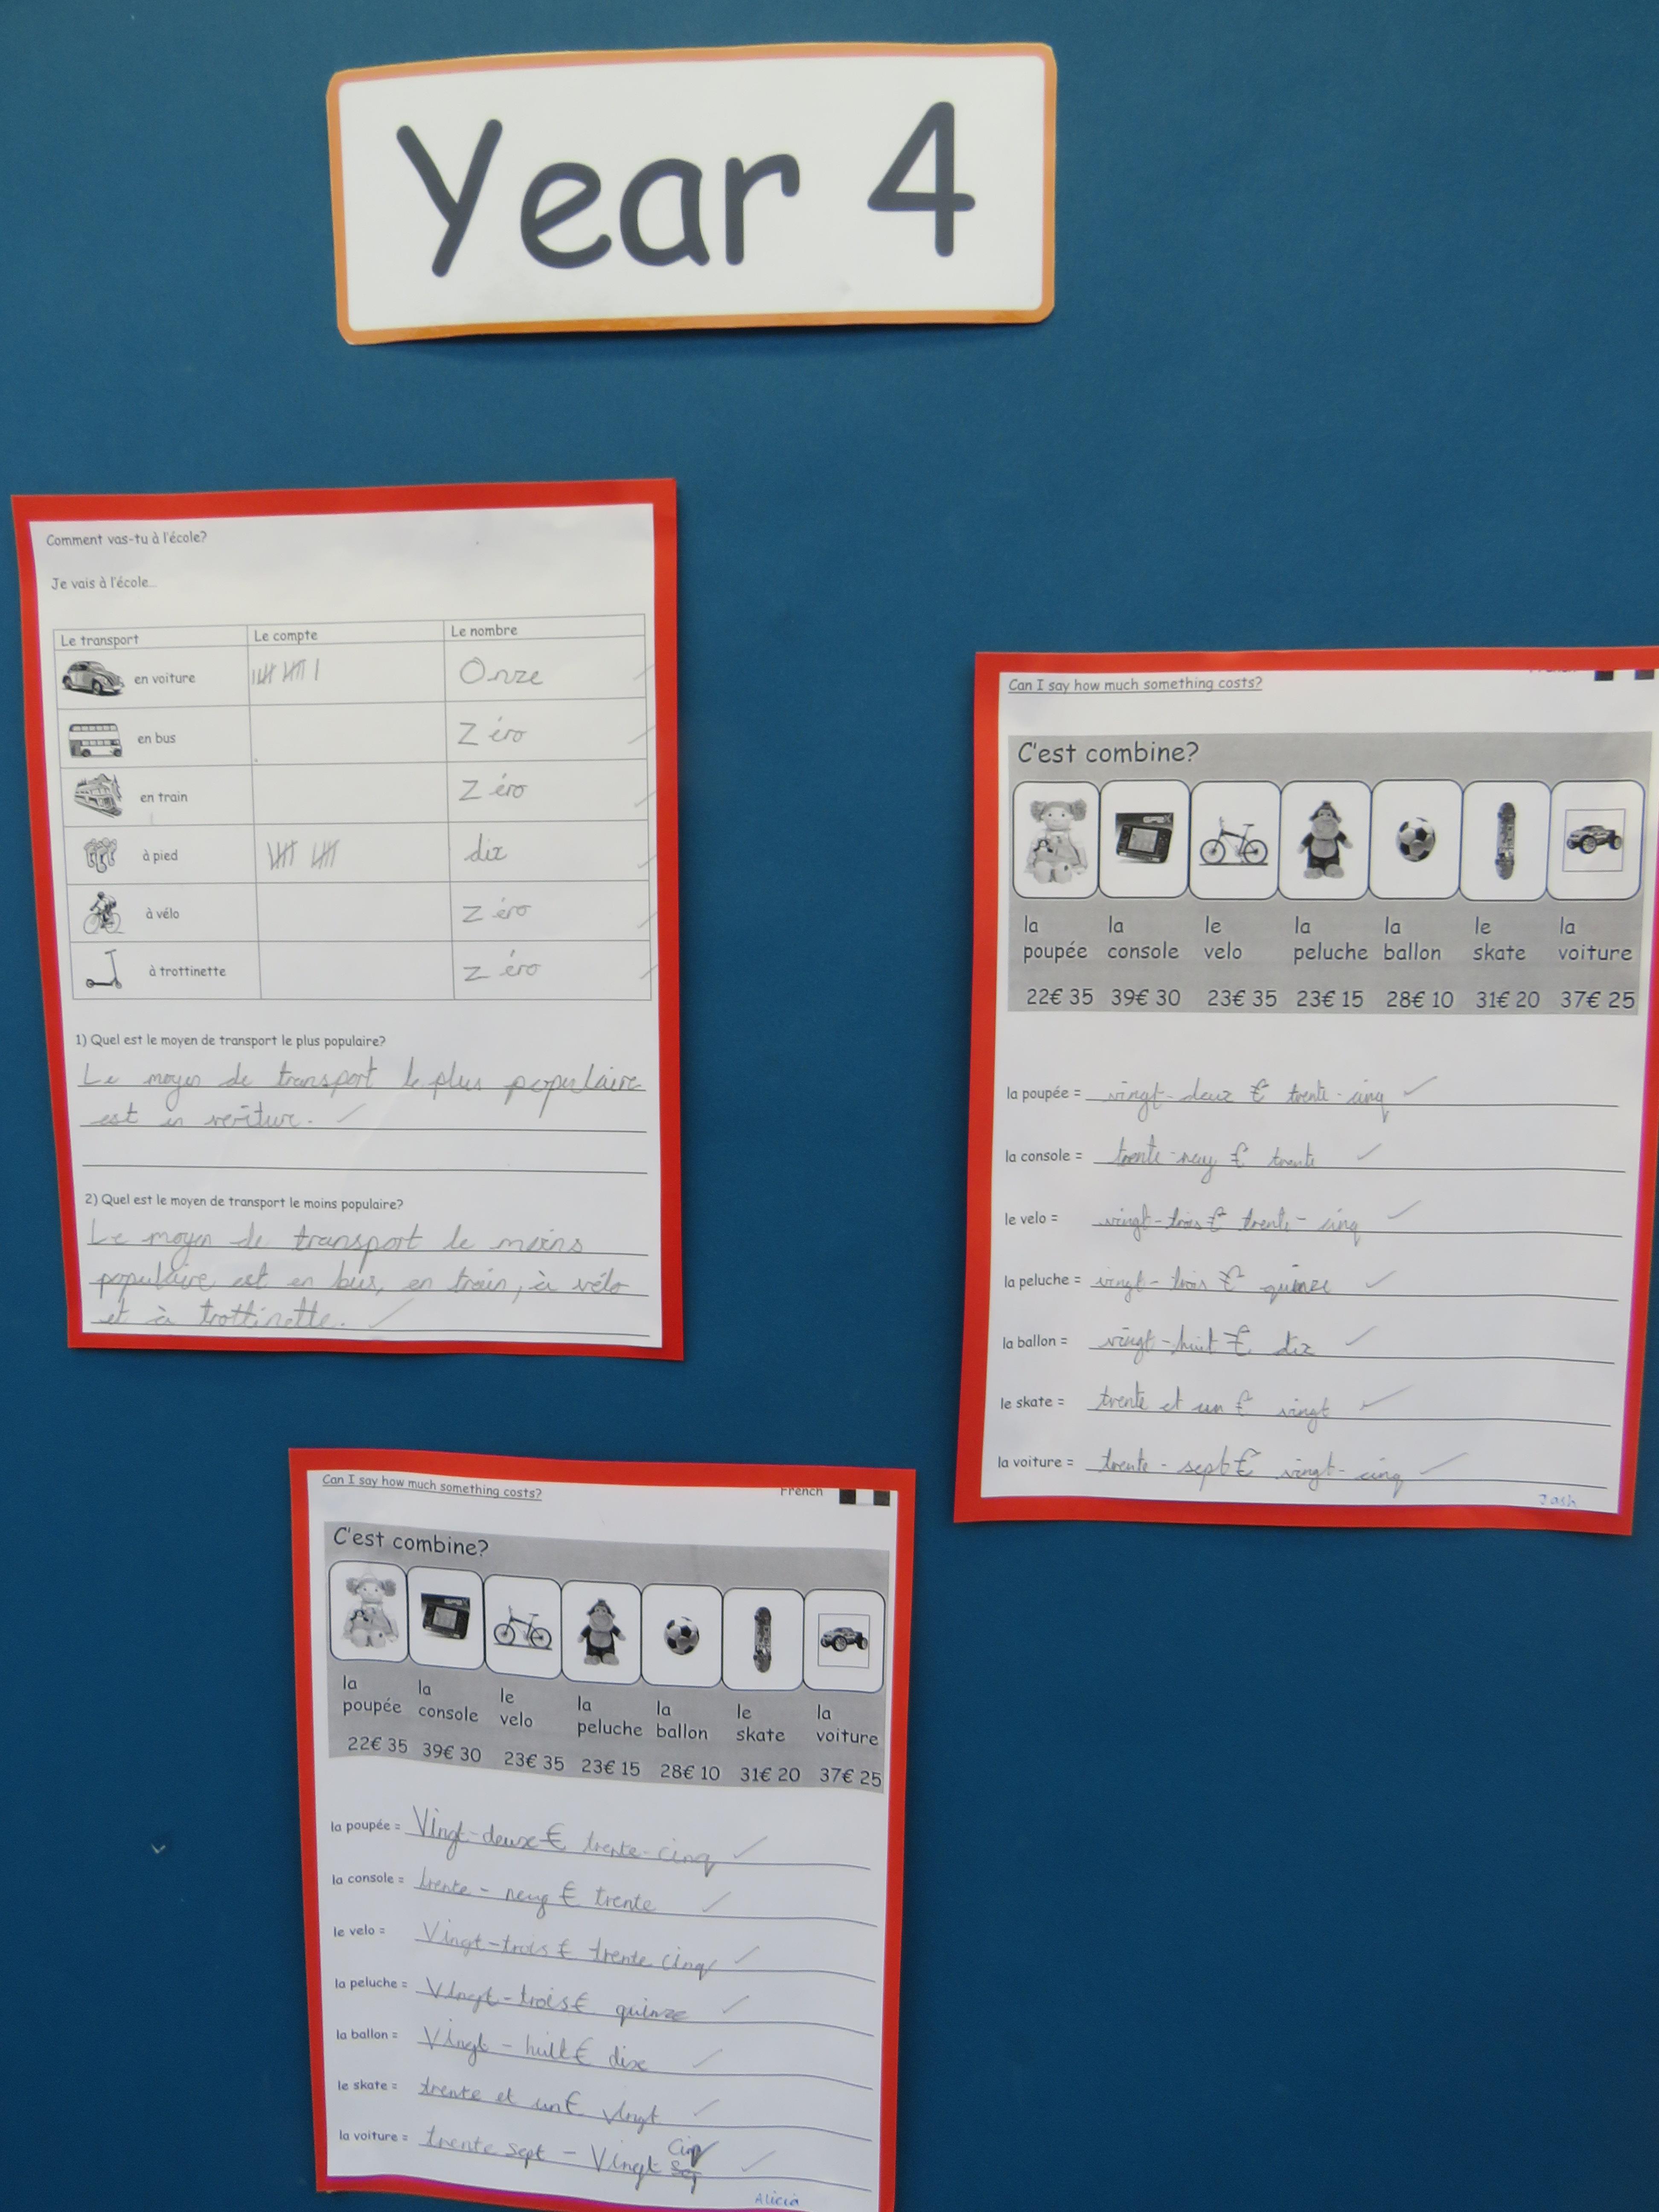 Year 4
Comment vas-tu à l'école?
Je vais à l'école...
Le transport Le compte Le nombre
en voiture Onze
en bus Zéro
en train Zéro
à pied dix
à vélo zéro
à trottinette zéro
1) Quel est le moyen de transport le plus populaire?
Le moyen de transport le plus populaire
est en voiture.
2) Quel est le moyen de transport le moins populaire?
Le moyen de transport le moins
populaire est en bus, en train, à vélo
et à trottinette.
French
Can I say how much something costs?
C'est combine?
la la le la la le la
poupée console velo peluche ballon skate voiture
22€ 35 39€ 30 23€ 35 23€ 15 28€ 10 31€ 20 37€ 25
la poupée = vingt-deux € trente-cinq
la console = trente-neuf € trente
le velo = vingt-trois € trente-cinq
la peluche = vingt-trois € quinze
la ballon = vingt-huit € dix
le skate = trente et un € vingt
la voiture = trente-sept € vingt-cinq
Josh
Can I say how much something costs? French
C'est combine?
la la le la la le la
poupée console velo peluche ballon skate voiture
22€ 35 39€ 30 23€ 35 23€ 15 28€ 10 31€ 20 37€ 25
la poupée = Vingt-deux € trente-cinq
la console = trente-neuf € trente
le velo = Vingt-trois € trente cinq
la peluche = Vingt-trois € quinze
la ballon = Vingt-huit € dix
le skate = trente et un € vingt
la voiture = trente sept - Vingt cinq
Alicia